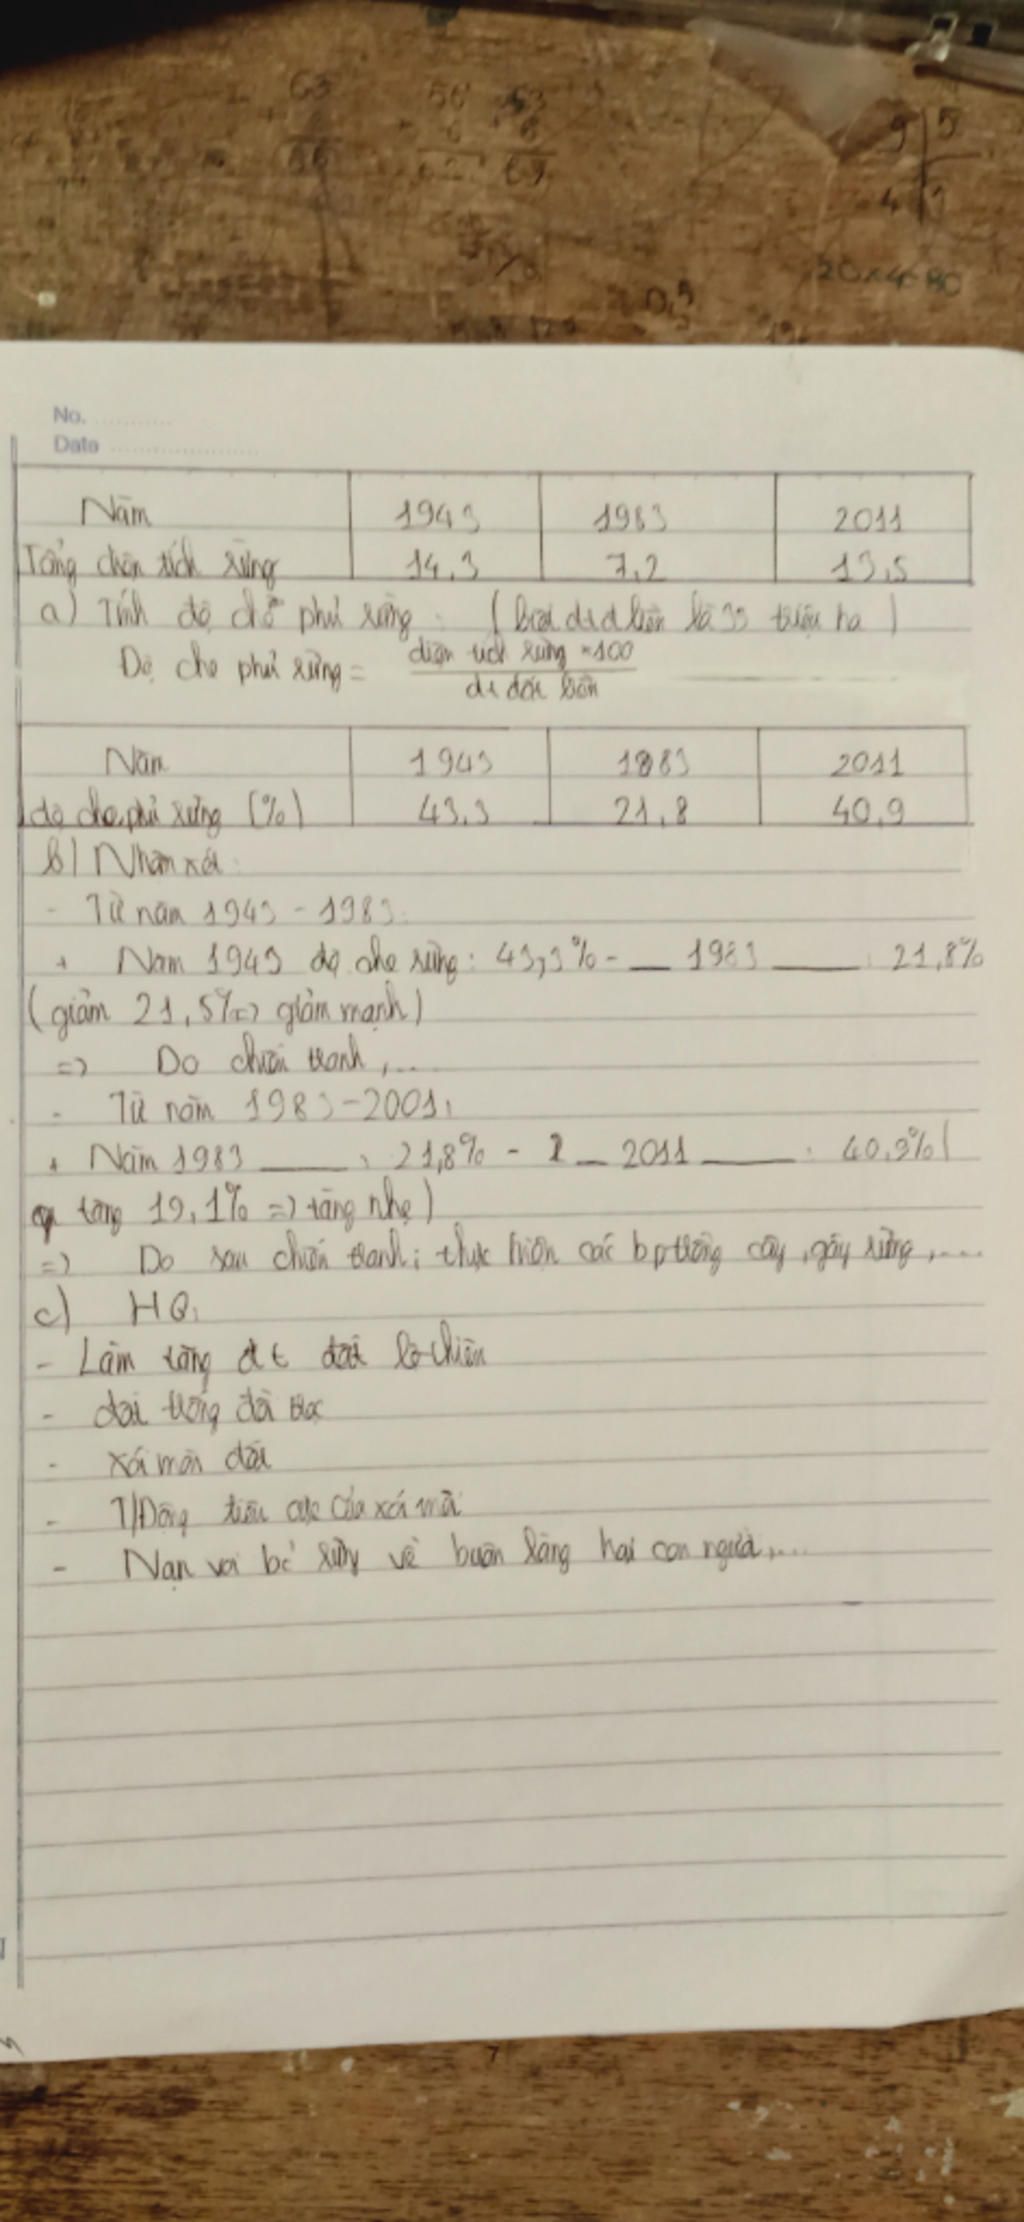 No.
Date
Năm 1943 1983 2011
Tổng diện tích rừng 14,3 7,2 13,5
a) Tính độ che phủ rừng : ( biết dt đ liền là 33 triệu ha )
Độ che phủ rừng = diện tích rừng × 100
dt đất liền
Năm 1943 1983 2011
độ che phủ rừng (%) 43,3 21,8 40,9
b) Nhận xét:
- Từ năm 1943 - 1983:
+ Năm 1943 độ che rừng: 43,3% - __ 1983 ____ : 21,8%
(giảm 21,5% => giảm mạnh)
=> Do chiến tranh,...
- Từ năm 1983-2001:
+ Năm 1983 ____ : 21,8% - __ 2011 ____ : 40,9% (
tăng 19,1% => tăng nhẹ)
=> Do sau chiến tranh; thực hiện các bp trồng cây, gây rừng,....
c) HQ:
- Làm tăng dt đất
- đất trống đồi trọc
- xói mòn đất
- T/Động tiêu cực của xói mò
- Nạn voi bỏ rừng về buôn làng hại con người,...
56 53
6 6
69
9 5
4 1
20×4=80
0,5